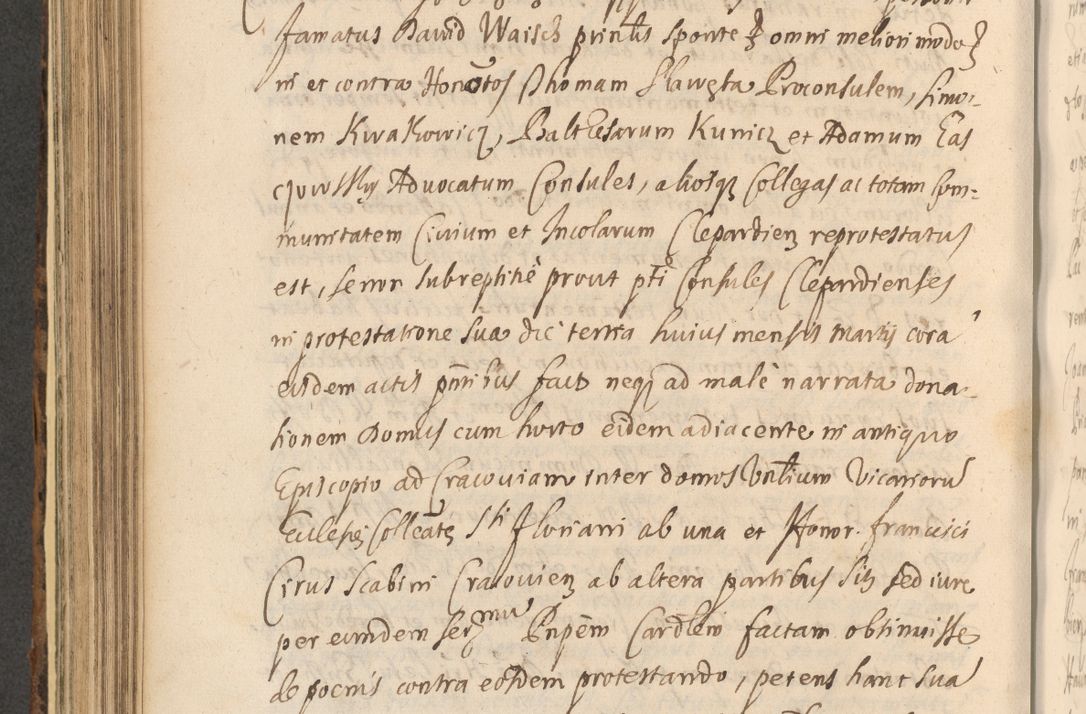 famatus David Waisch prinlis sponte et omni meliori modo et
in et contra Honotos Thomam Slawęta Proconsulem, Simo-
nem Kwakowicz, Balthesarum Kunicz et Adamum Czas
czowssky Advocatum Consules, aliosq Collegas ac totam Com-
munitatem Civium et Incolarum Clepardien reprotestatus
est, se non subreptitie prout pti Consules Clepardienses
in protestatione sua die tertia huius mensis Martij cora
eisdem actis pntibus facta neq ad male narrata dona-
tionem Domus cum horto eidem adiacente in antiquo
Episcopio ad Cracoviam inter domos Vnlium Vicariorū
Ecclesię Collegatę Sti Floriani ab una et Honor. Francisci
Cirus Scabini Cracovien ab altera partibus sitę sed iure
per eundem Serṃmū Pnpem Cardlem factam obtinuisse
de poenis contra eosdem protestando, petens hanc sua